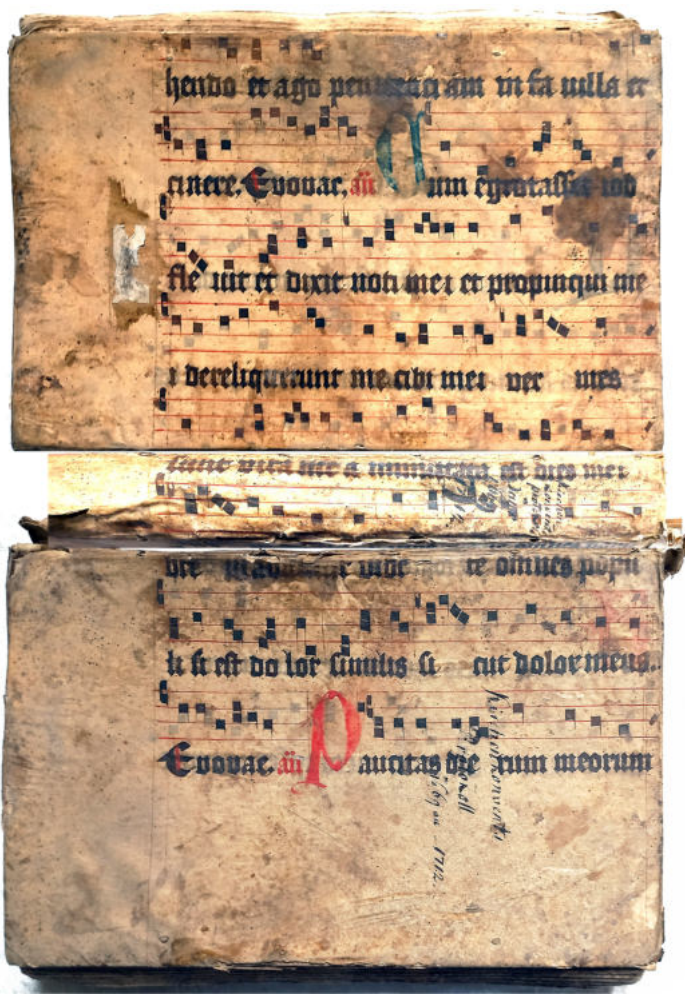 hendo et ago penitenciam in fa uilla et
cinere. Euouae. añ Cum egrotasset iob
fle uit et dixit noti mei et propinqui me
i dereliquerunt me cibi mei ver mes
sunt vita me a inmutata est dies mei
bre omnes popu
li si est do lor similis si cut dolor meus.
Euouae. añ Paucitas die rum meorum
Kirchenkonvents
Protocoll
1669 an 1712.